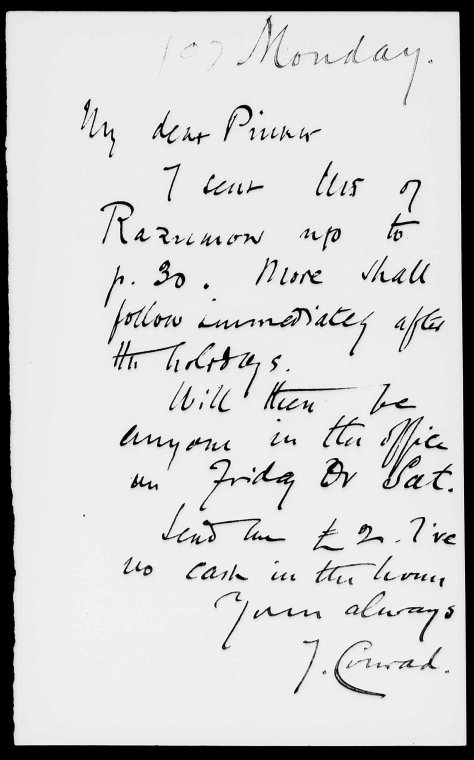 Monday.
My dear Pinker
I sent MS of
Razumow up to
p. 30. More shall
follow immediately after
the holidays.
Will there be
anyone in the office
on Friday Or Sat.
Send me £2. I've
no cash in the house
Yours always
J. Conrad.